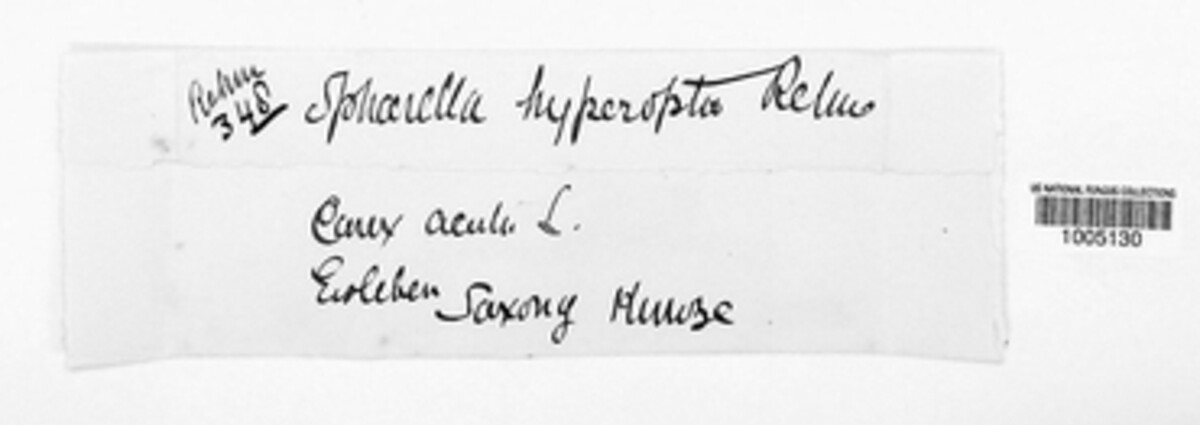 Rehm
348
Sphaerella hyperopta Rehm
Carex acuta L.
Eisleben Saxony Kunze
US NATIONAL FUNGUS COLLECTIONS
1005130